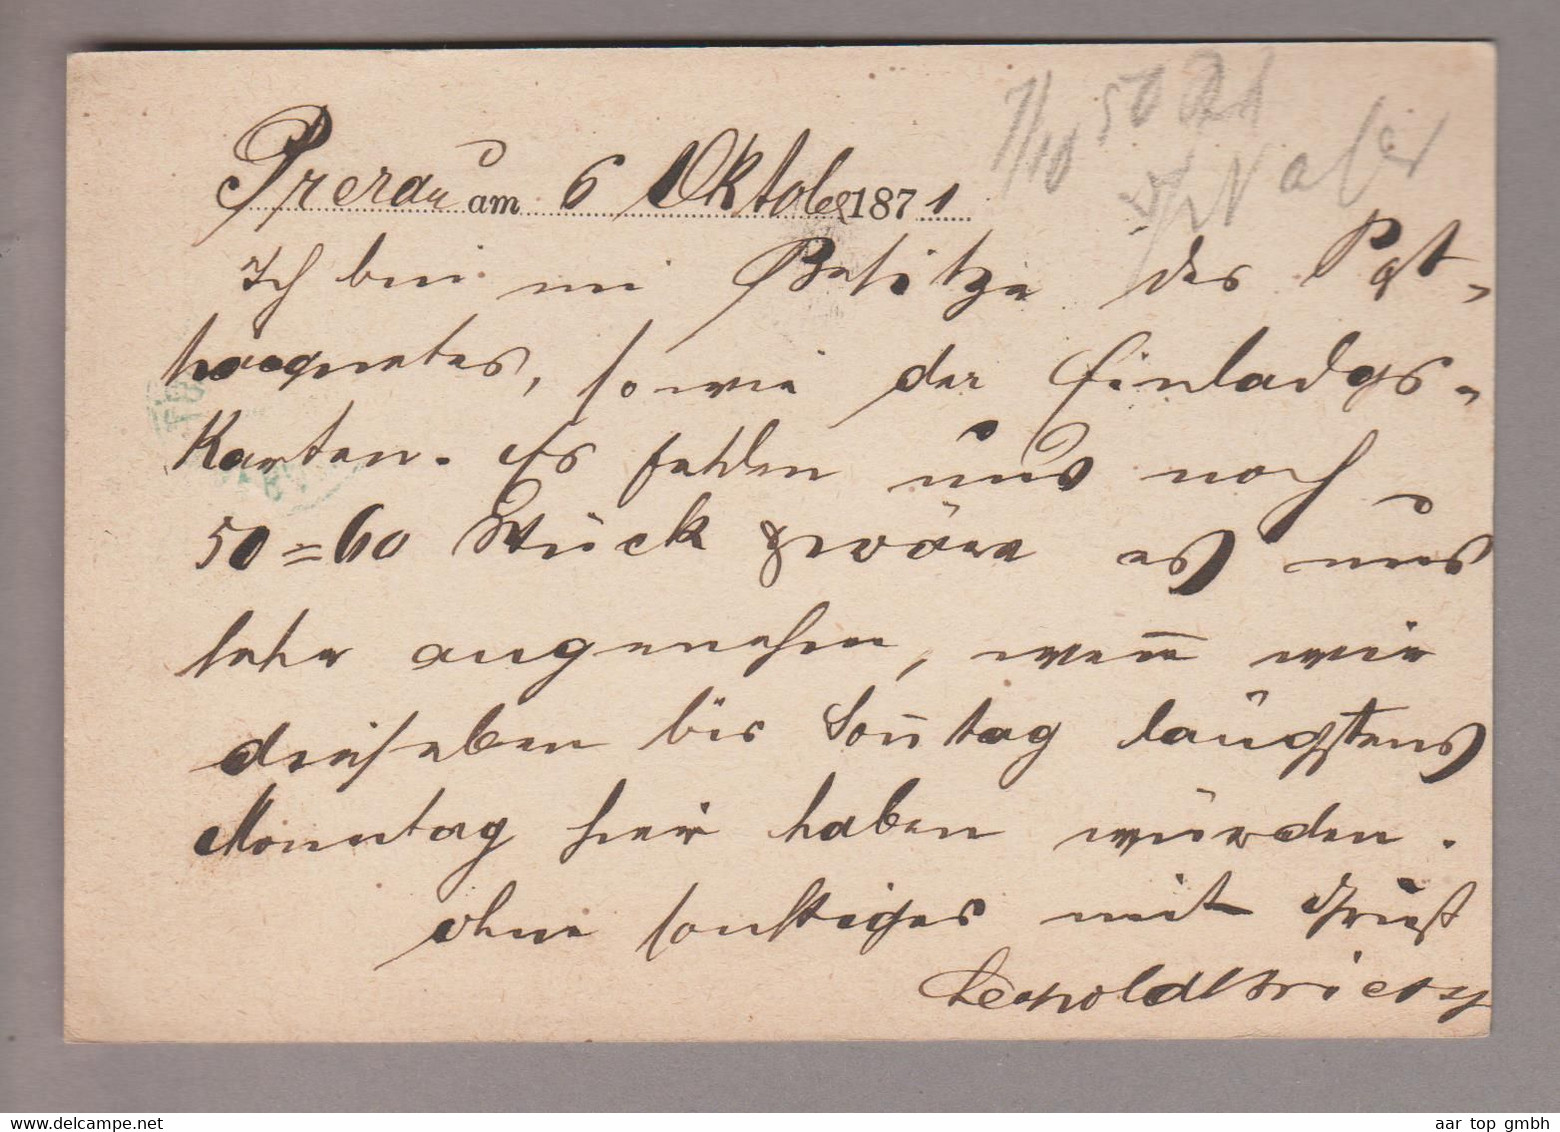 Prerau am 6 Oktob 1871
7/10 50
Ich bin im Besitze des Pqt-
tes, sowie der Einladgs-
Karten. Es fehlen uns noch
50=60 Stück & wäre es uns
sehr angenehm, wen̄ wir
dieselben bis Son̄tag längstens
Monntag hier haben würden.
ohne sonstiges mit Gruß
Leopold
aar top gmbh